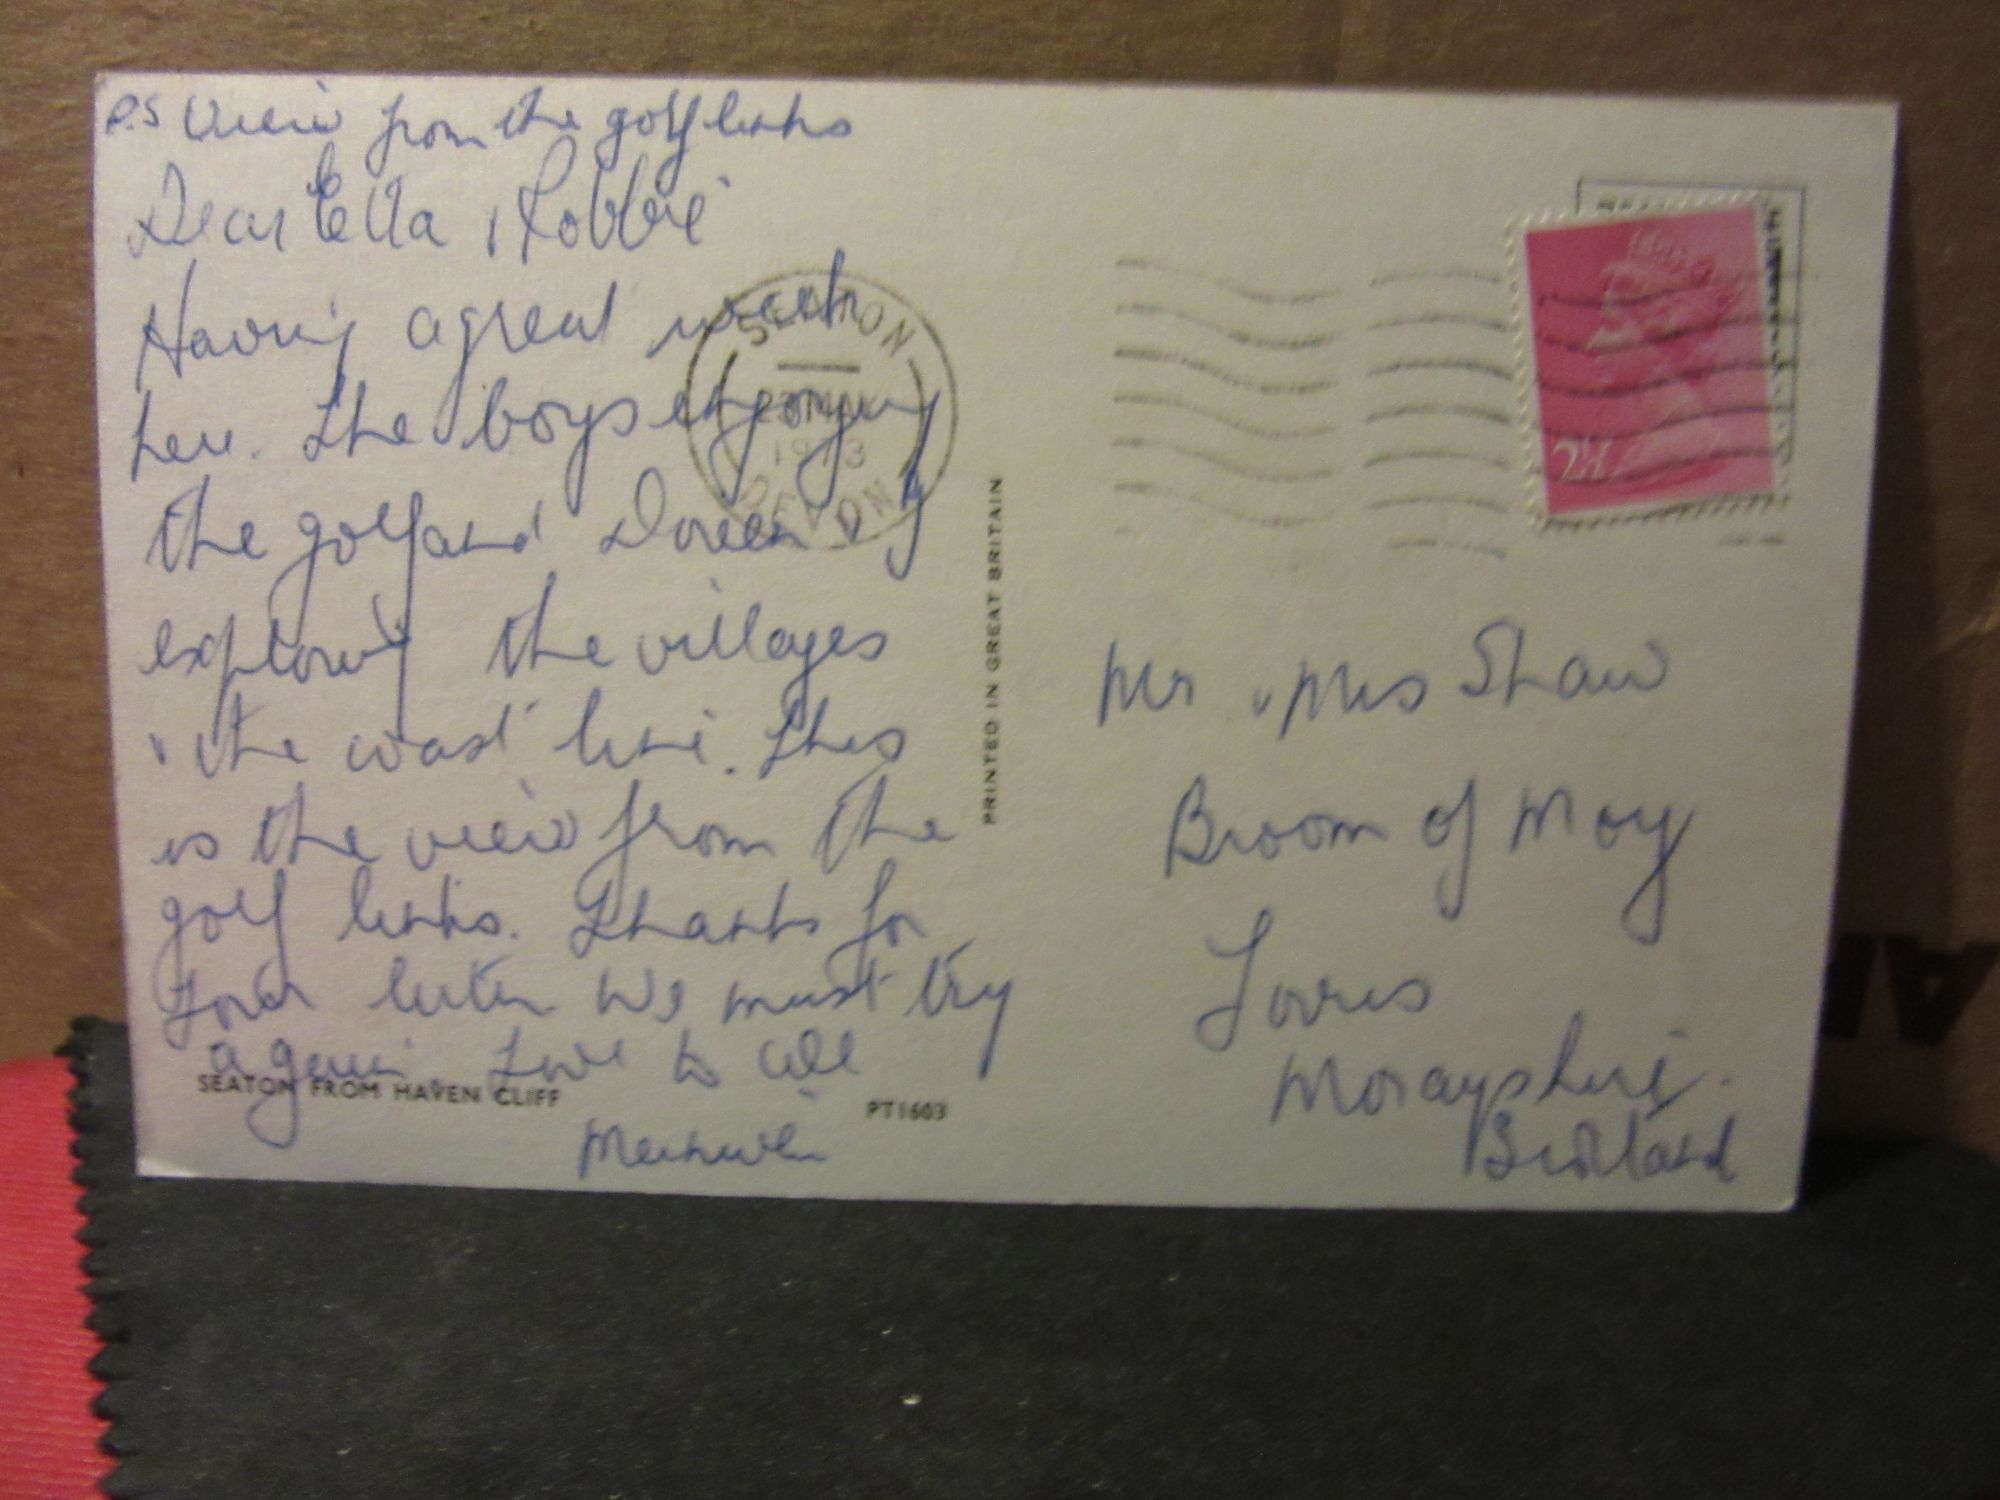 P.S View from the golf links
Dear Ella & Robbie
Having a great week
here. The boys enjoying
the golf and Doreen & I
exploring the villages
& the coast line. This
is the view from the
golf links. Thanks for
your letter We must try
again. Love to all
SEATON FROM HAVEN CLIFF
PT1603
PRINTED IN GREAT BRITAIN
SEATON
1973
DEVON
2½P
Mr & Mrs Shaw
Broom of Moy
Forres
Morayshire.
Scotland